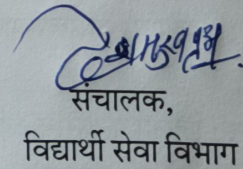 संचालक,
विद्यार्थी सेवा विभाग